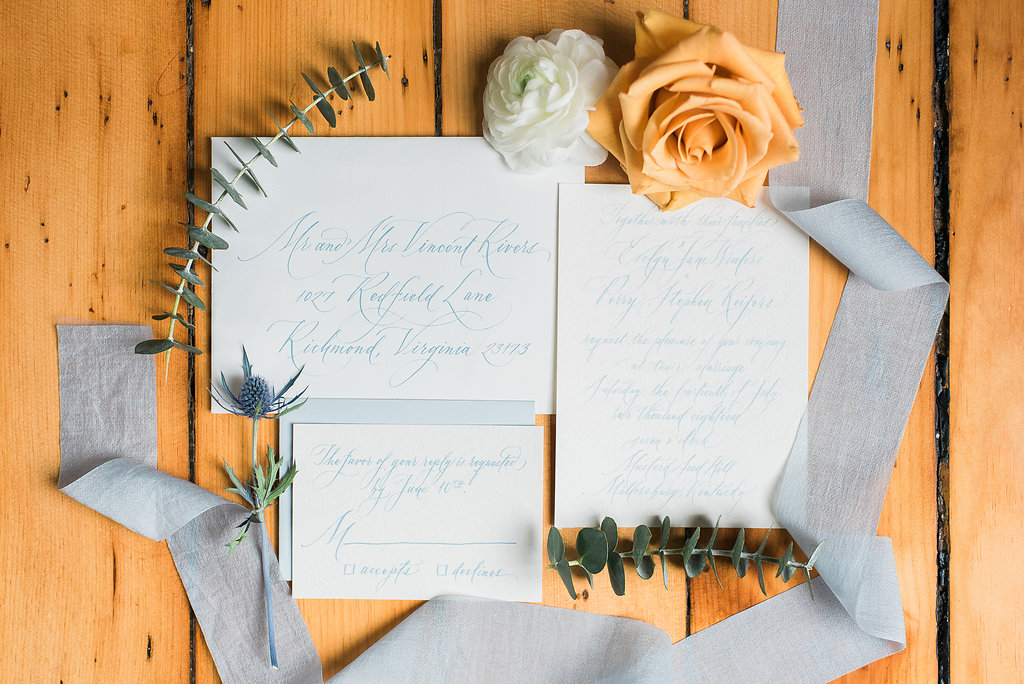 Mr. and Mrs. Vincent Rivers
1027 Redfield Lane
Richmond, Virginia 23173
Together with their families
Evelyn Jane Winters
+
Perry Stephen Reifers
request the pleasure of your company
at their marriage
Saturday, the fourteenth of July
two thousand eighteen
o'clock
Mustard Seed Hill
Millersburg, Kentucky
The favor of your reply is requested
by June 10th.
M
accepts declines